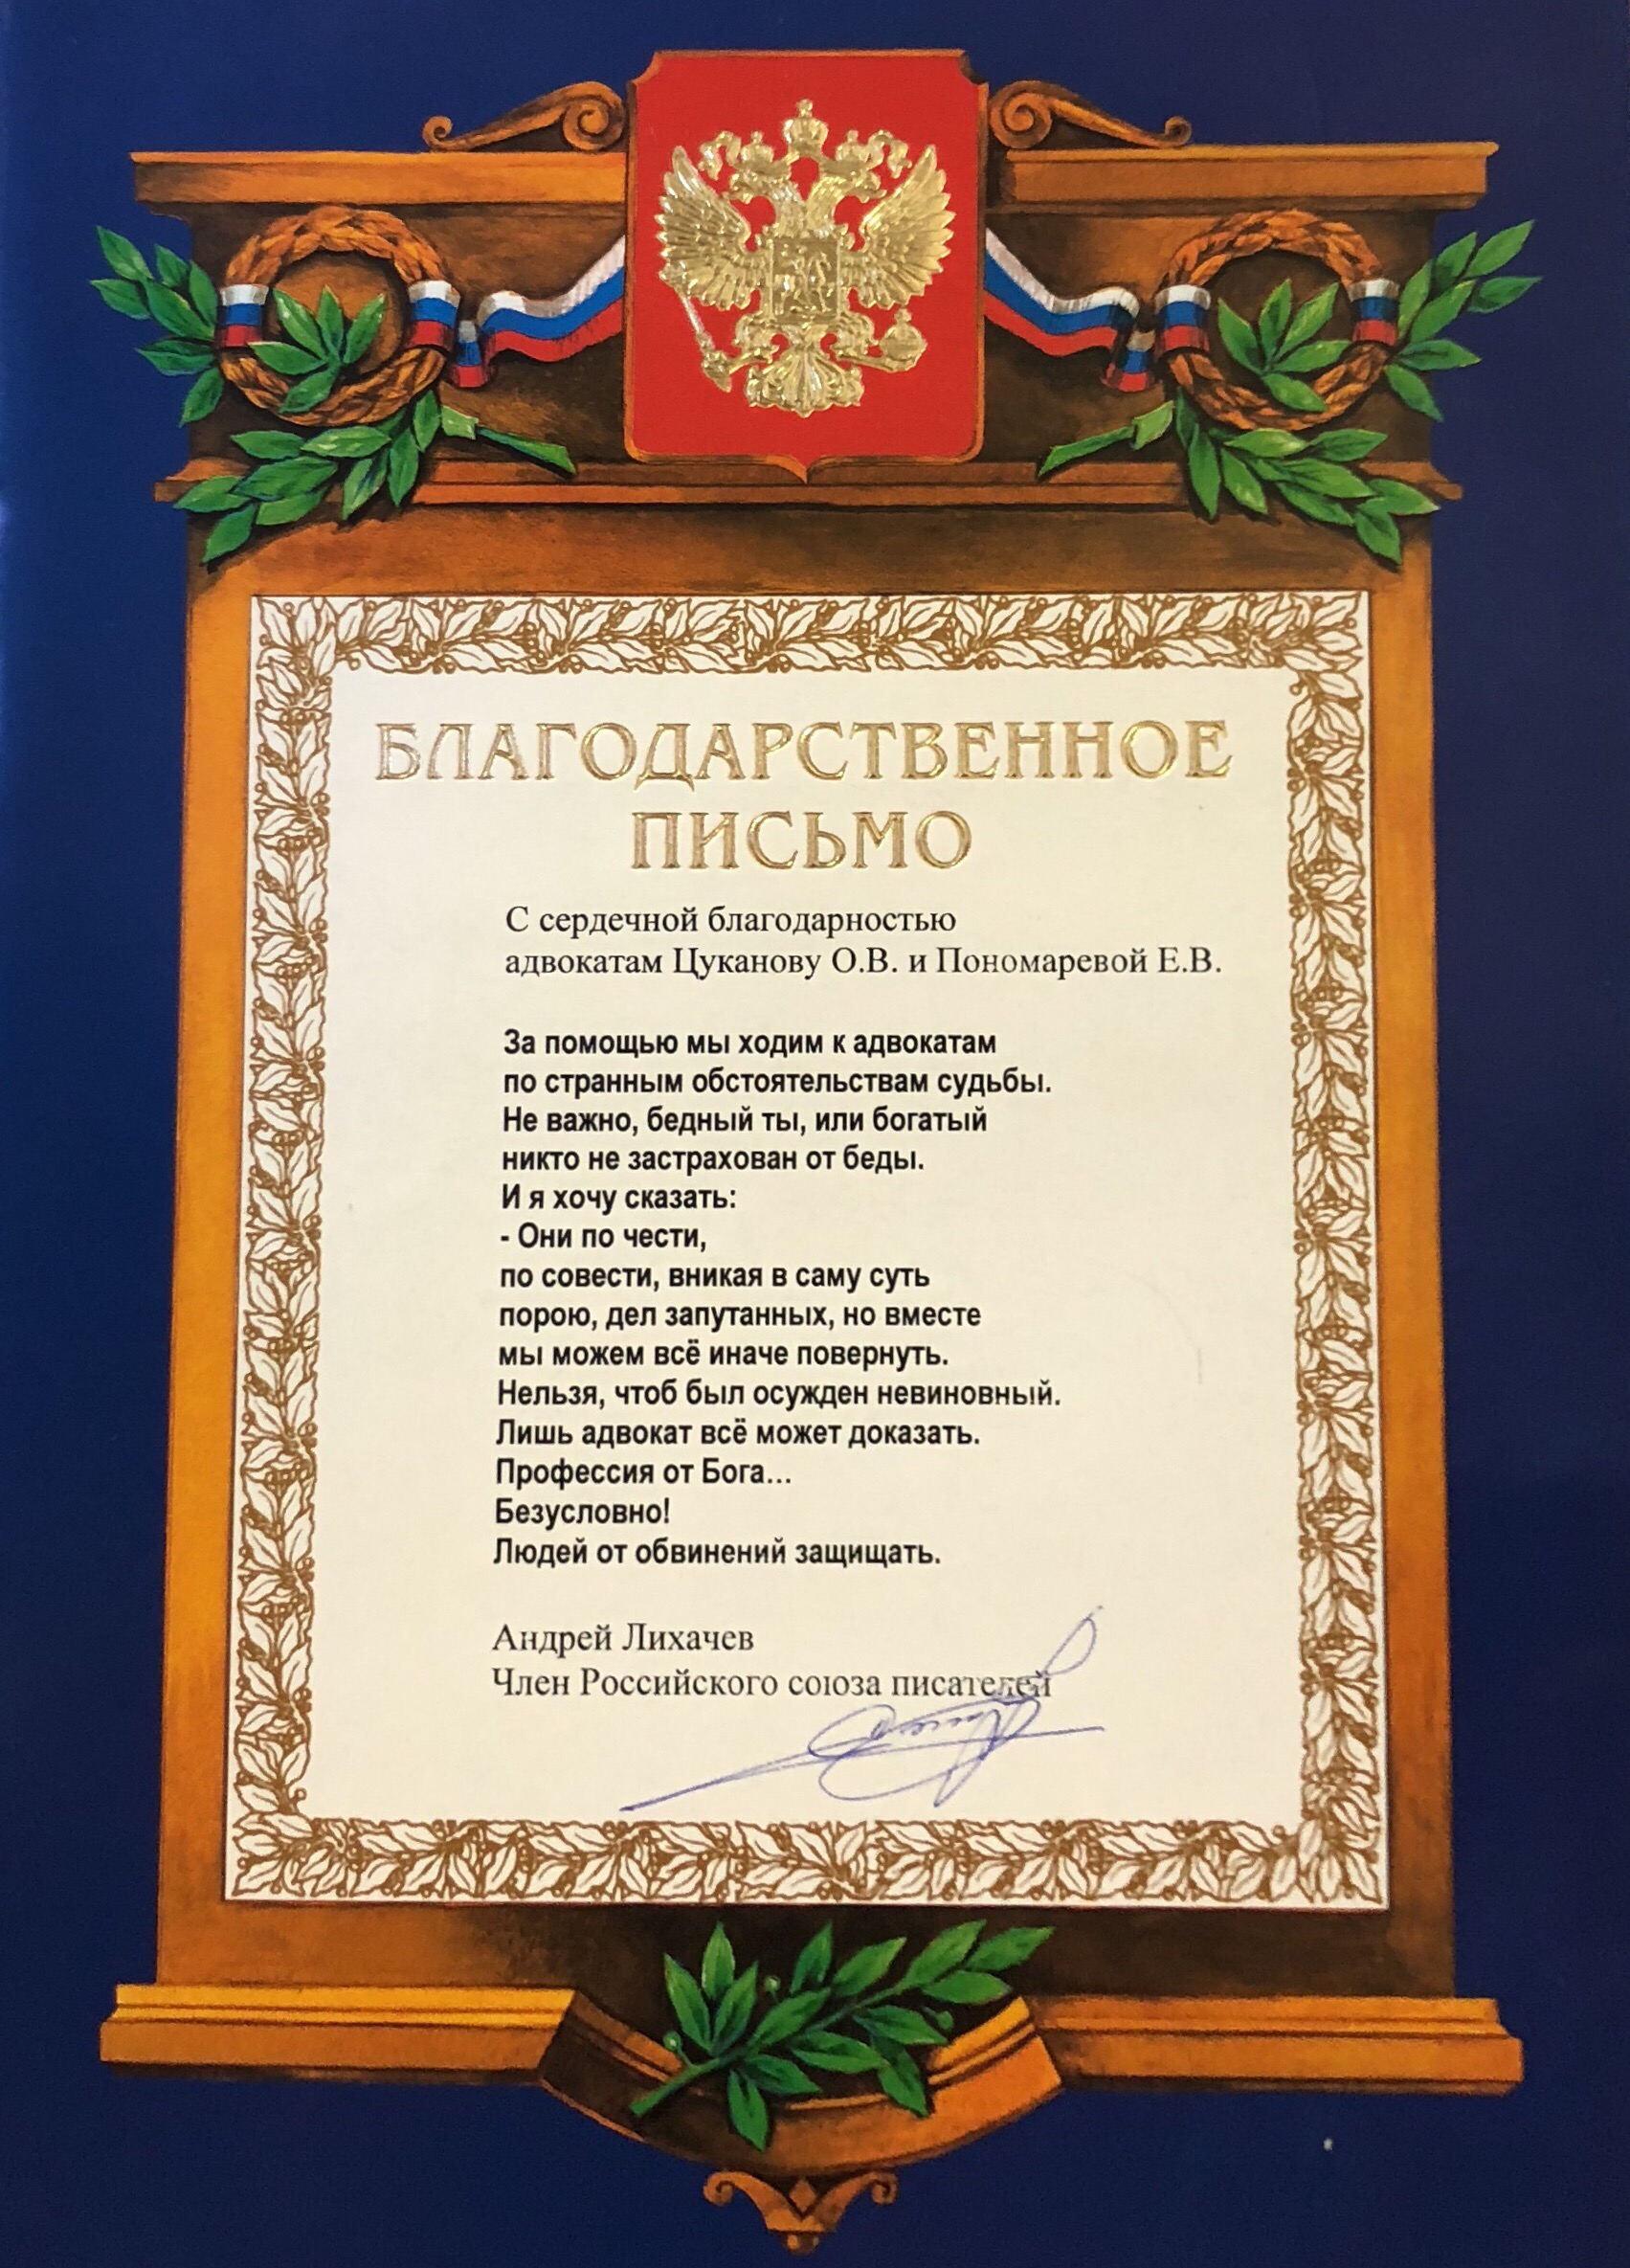 БЛАГОДАРСТВЕННОЕ
ПИСЬМО
С сердечной благодарностью
адвокатам Цуканову О.В. и Пономаревой Е.В.
За помощью мы ходим к адвокатам
по странным обстоятельствам судьбы.
Не важно, бедный ты, или богатый
никто не застрахован от беды.
И я хочу сказать:
- Они по чести,
по совести, вникая в саму суть
порою, дел запутанных, но вместе
мы можем всё иначе повернуть.
Нельзя, чтоб был осужден невиновный.
Лишь адвокат всё может доказать.
Профессия от Бога...
Безусловно!
Людей от обвинений защищать.
Андрей Лихачев
Член Российского союза писателей